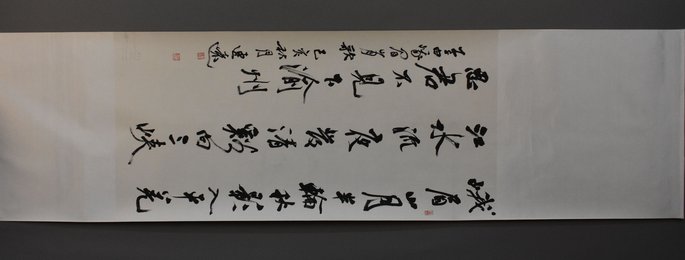 峨眉山月半輪秋影入平羌
江水流夜發清谿向三峽
思君不見下渝州
李白峨眉山月歌 己亥秋月